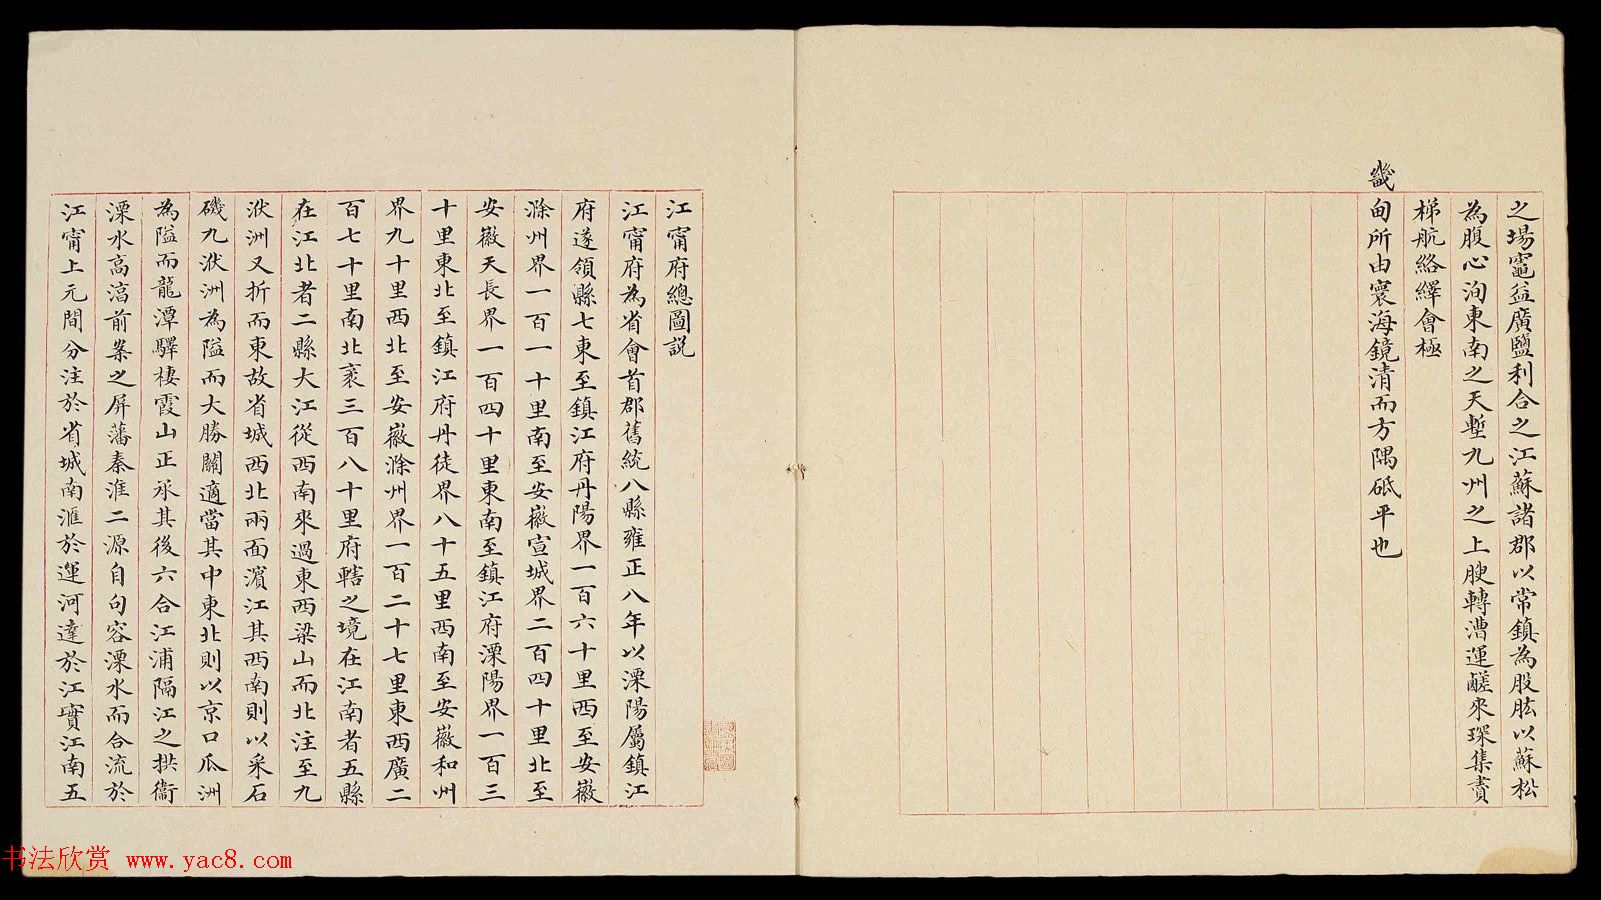 之場竈益廣鹽利合之江蘇諸郡以常鎮為股肱以蘇松
為腹心洵東南之天塹九州之上腴轉漕運鹺來琛集賮
梯航絡繹會極
畿甸所由寰海鏡清而方隅砥平也
江甯府總圖説
江甯府為省會首郡舊統八縣雍正八年以溧陽屬鎮江
府遂領縣七東至鎮江府丹陽界一百六十里西至安徽
滁州界一百一十里南至安徽宣城界二百四十里北至
安徽天長界一百四十里東南至鎮江府溧陽界一百三
十里東北至鎮江府丹徒界八十五里西南至安徽和州
界九十里西北至安徽滁州界一百二十七里東西廣二
百七十里南北袤三百八十里府轄之境在江南者五縣
在江北者二縣大江從西南來過東西梁山而北注至九
洑洲又折而東故省城西北兩面濱江其西南則以采石
磯九洑洲為隘而大勝關適當其中東北則以京口瓜洲
為隘而龍潭驛棲霞山正承其後六合江浦隔江之拱衞
溧水高淳前案之屏藩秦淮二源自句容溧水而合流於
江甯上元間分注於省城南滙於運河達於江實江南五
书法欣赏 www.yac8.com